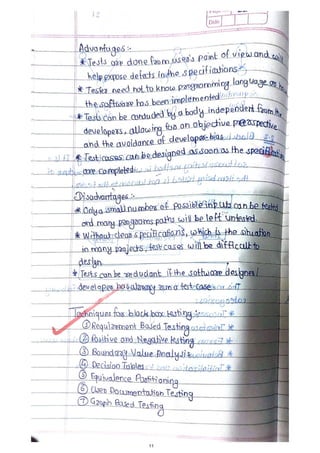 12
Date
Advantages :-
* Tests are done from user's point of view and will
help expose defects in the specifications
* Tester need not to know programming language or how
the software has been implemented
* Tests can be conducted by a body independent from the
developers, allowing for an objective perspective
and the avoidance of developer bias
* Test cases can be designed as soon as the specification
are completed
Disadvantages :-
* Only a small number of possible inputs can be tested
and many programs paths will be left untested.
* Without clear specifications, which is the situation
in many projects, test cases will be difficult to
design
* Tests can be redudant if the software designer /
developer has already run a test case
Techniques for black box testing :-
① Requirement Based Testing
② Positive and Negative testing
③ Boundary Value Analysis
④ Decision Tables
⑤ Equivalence Partitioning
⑥ User Documentation Testing
⑦ Graph Based Testing